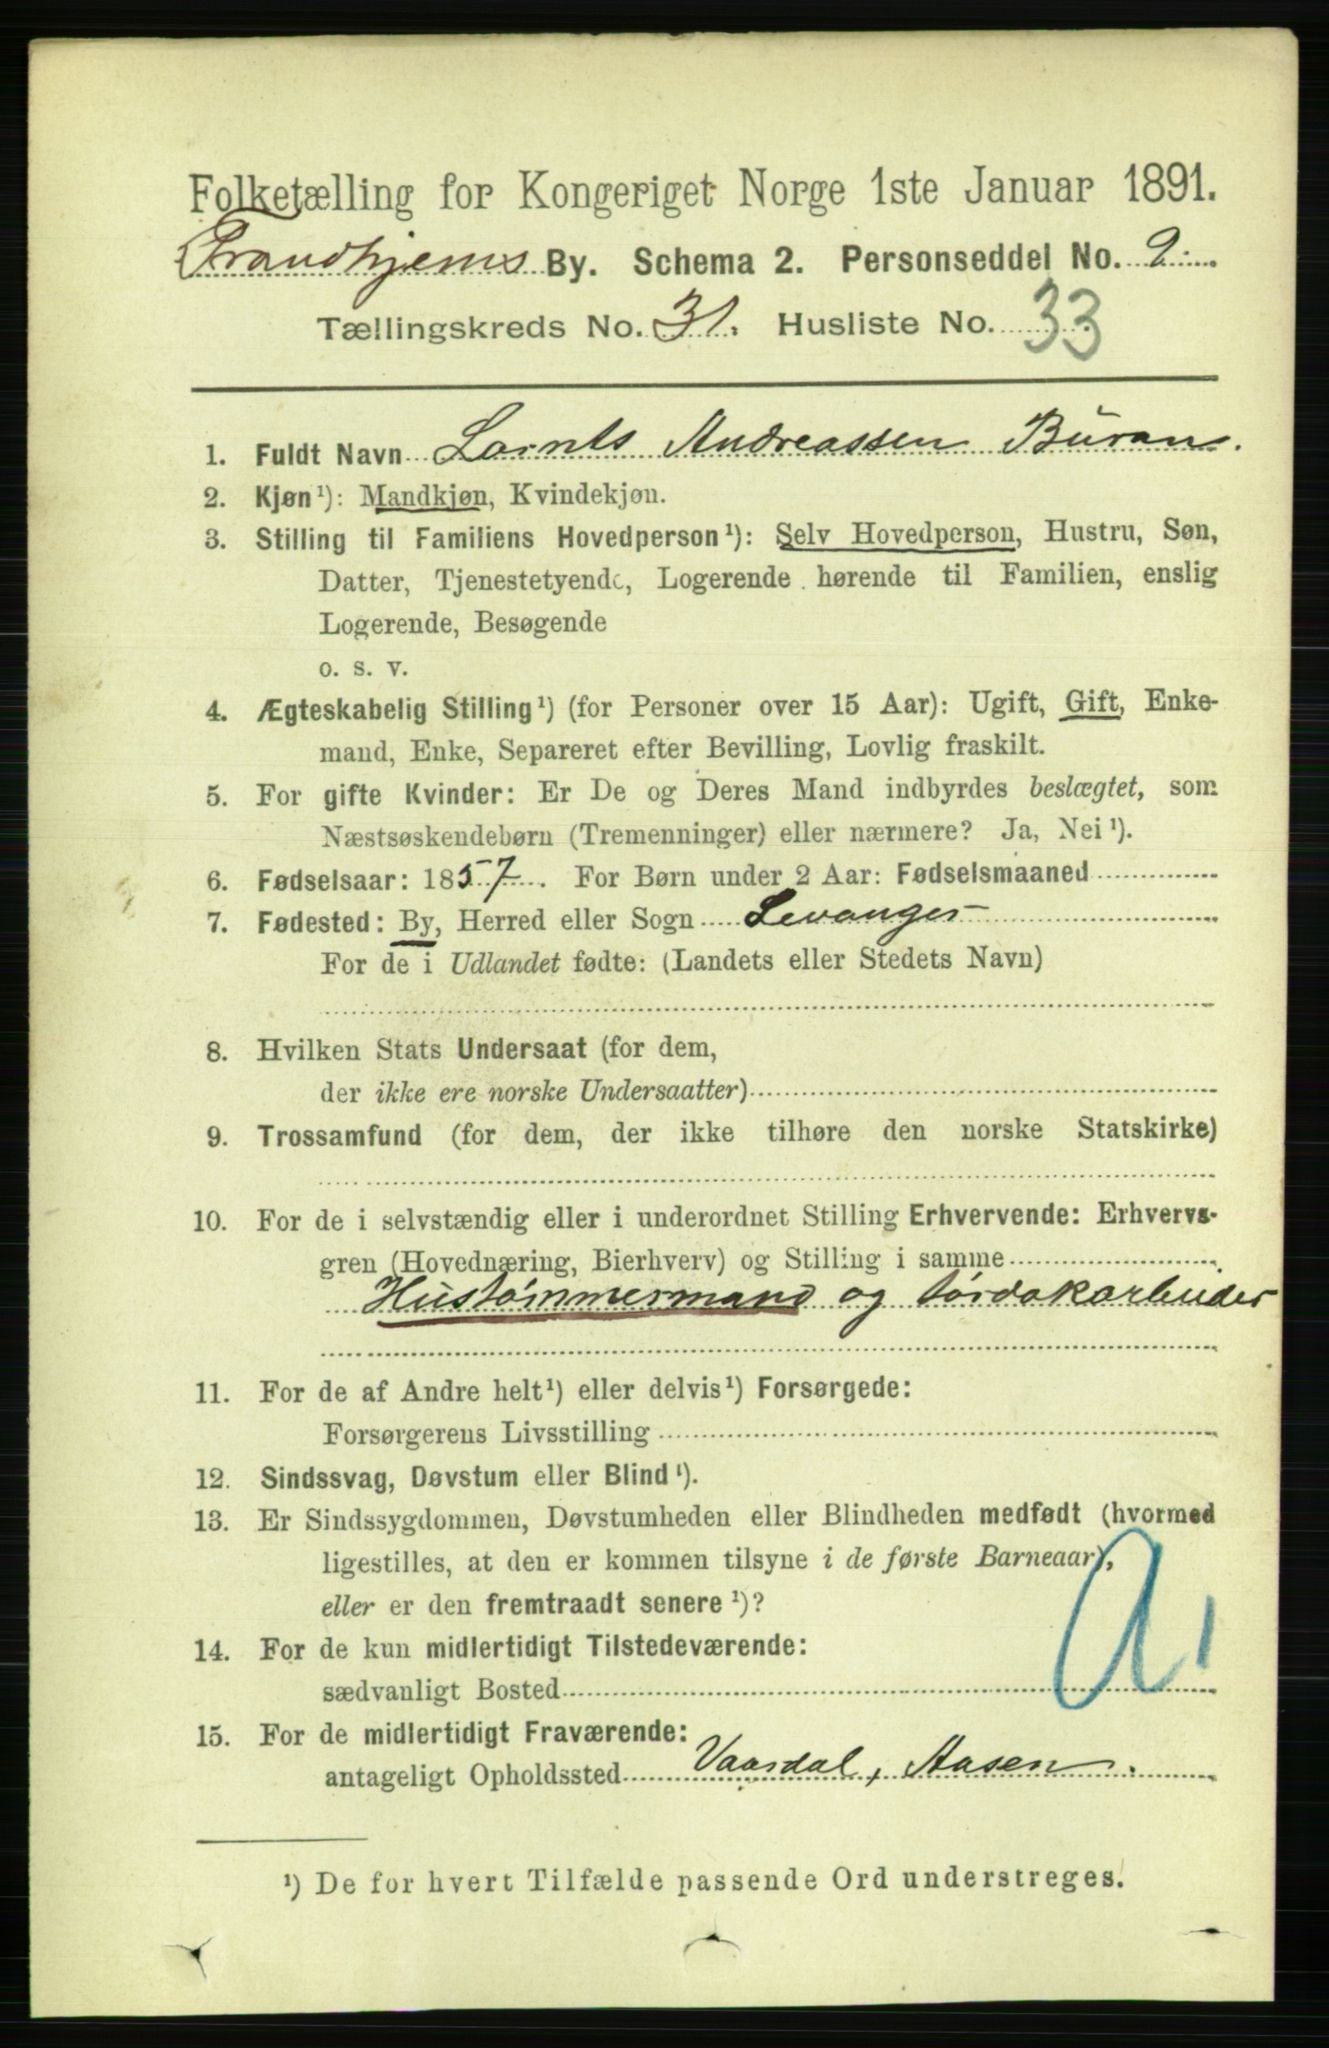 Folketælling for Kongeriget Norge 1ste Januar 1891.
Trondhjems By. Schema 2. Personseddel No. 2.
Tællingskreds No. 31. Husliste No. 33
1. Fuldt Navn Lornts Andreassen Buran.
2. Kjøn¹): Mandkjøn, Kvindekjøn.
3. Stilling til Familiens Hovedperson¹): Selv Hovedperson, Hustru, Søn,
Datter, Tjenestetyende, Logerende hørende til Familien, enslig
Logerende, Besøgende
o. s. v.
4. Ægteskabelig Stilling¹) (for Personer over 15 Aar): Ugift, Gift, Enke-
mand, Enke, Separeret efter Bevilling, Lovlig fraskilt.
5. For gifte Kvinder: Er De og Deres Mand indbyrdes beslægtet, som
Næstsøskendebørn (Tremenninger) eller nærmere? Ja, Nei¹).
6. Fødselsaar: 1857. For Børn under 2 Aar: Fødselsmaaned
7. Fødested: By, Herred eller Sogn Levanger
For de i Udlandet fødte: (Landets eller Stedets Navn)
8. Hvilken Stats Undersaat (for dem,
der ikke ere norske Undersaatter)
9. Trossamfund (for dem, der ikke tilhøre den norske Statskirke)
10. For de i selvstændig eller i underordnet Stilling Erhvervende: Erhvervs-
gren (Hovednæring, Bierhverv) og Stilling i samme
Hustømmermand og
11. For de af Andre helt¹) eller delvis¹) Forsørgede:
Forsørgerens Livsstilling
12. Sindssvag, Døvstum eller Blind¹).
13. Er Sindssygdommen, Døvstumheden eller Blindheden medfødt (hvormed
ligestilles, at den er kommen tilsyne i de første Barneaar),
eller er den fremtraadt senere¹)?
14. For de kun midlertidigt Tilstedeværende:
sædvanligt Bosted
15. For de midlertidigt Fraværende:
antageligt Opholdssted Vaardal, Aasen.
¹) De for hvert Tilfælde passende Ord understreges.